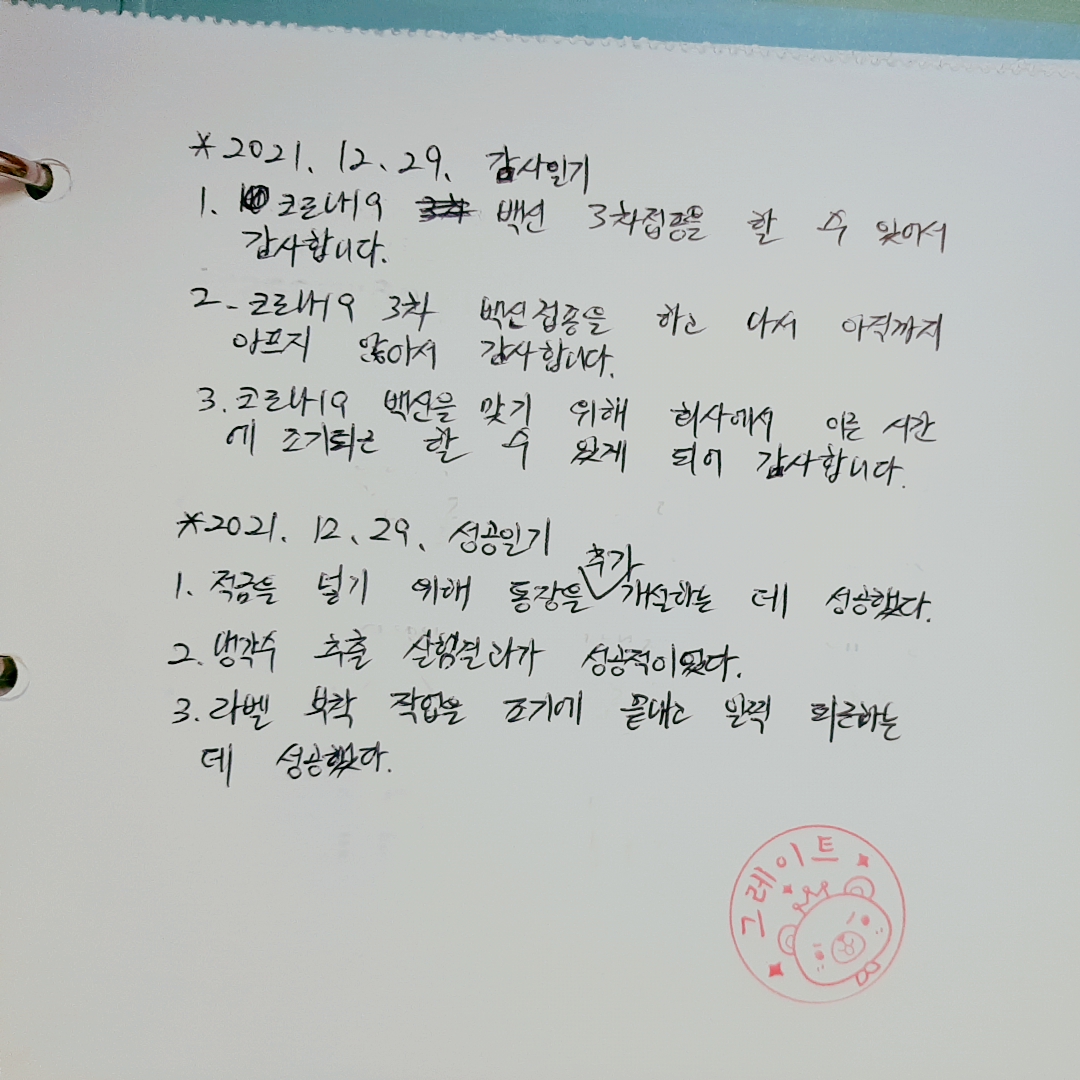 *2021. 12. 29. 감사일기
1. 코로나19 백신 3차접종을 할 수 있어서
감사합니다.
2. 코로나19 3차 백신접종을 하고 나서 아직까지
아프지 않아서 감사합니다.
3. 코로나19 백신을 맞기 위해 회사에서 이른 시간
에 조기퇴근 할 수 있게 되어 감사합니다.
*2021. 12. 29. 성공일기
1. 적금을 넣기 위해 통장을 추가 개설하는 데 성공했다.
2. 냉각수 추출 실험결과가 성공적이었다.
3. 라벨 부착 작업을 조기에 끝내고 일찍 퇴근하는
데 성공했다.
그레이트